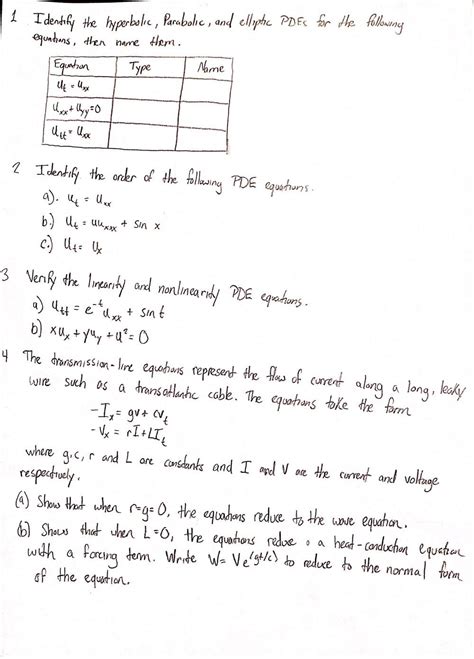 1 Identify the hyperbolic, Parabolic, and elliptic PDEs for the following
equations, then name them.
Equation Type Name
u_t = u_xx
u_xx + u_yy = 0
u_tt = u_xx
2 Identify the order of the following PDE equations.
a). u_t = u_xx
b.) u_t = uu_xxx + sin x
c.) u_t = u_x
3 Verify the linearity and nonlinearity PDE equations.
a) u_tt = e^-t u_xx + sin t
b) xu_x + yu_y + u² = 0
4 The transmission-line equations represent the flow of current along a long, leaky
wire such as a transatlantic cable. The equations take the form
-I_x = gv + cv_t
-V_x = rI + LI_t
where g, c, r and L are constants and I and V are the current and voltage
respectively.
(a) Show that when r=g=0, the equations reduce to the wave equation.
(b) Show that when L=0, the equations reduce o a heat-conduction equation
with a forcing term. Write W = Ve^(gt/c) to reduce to the normal form
of the equation.